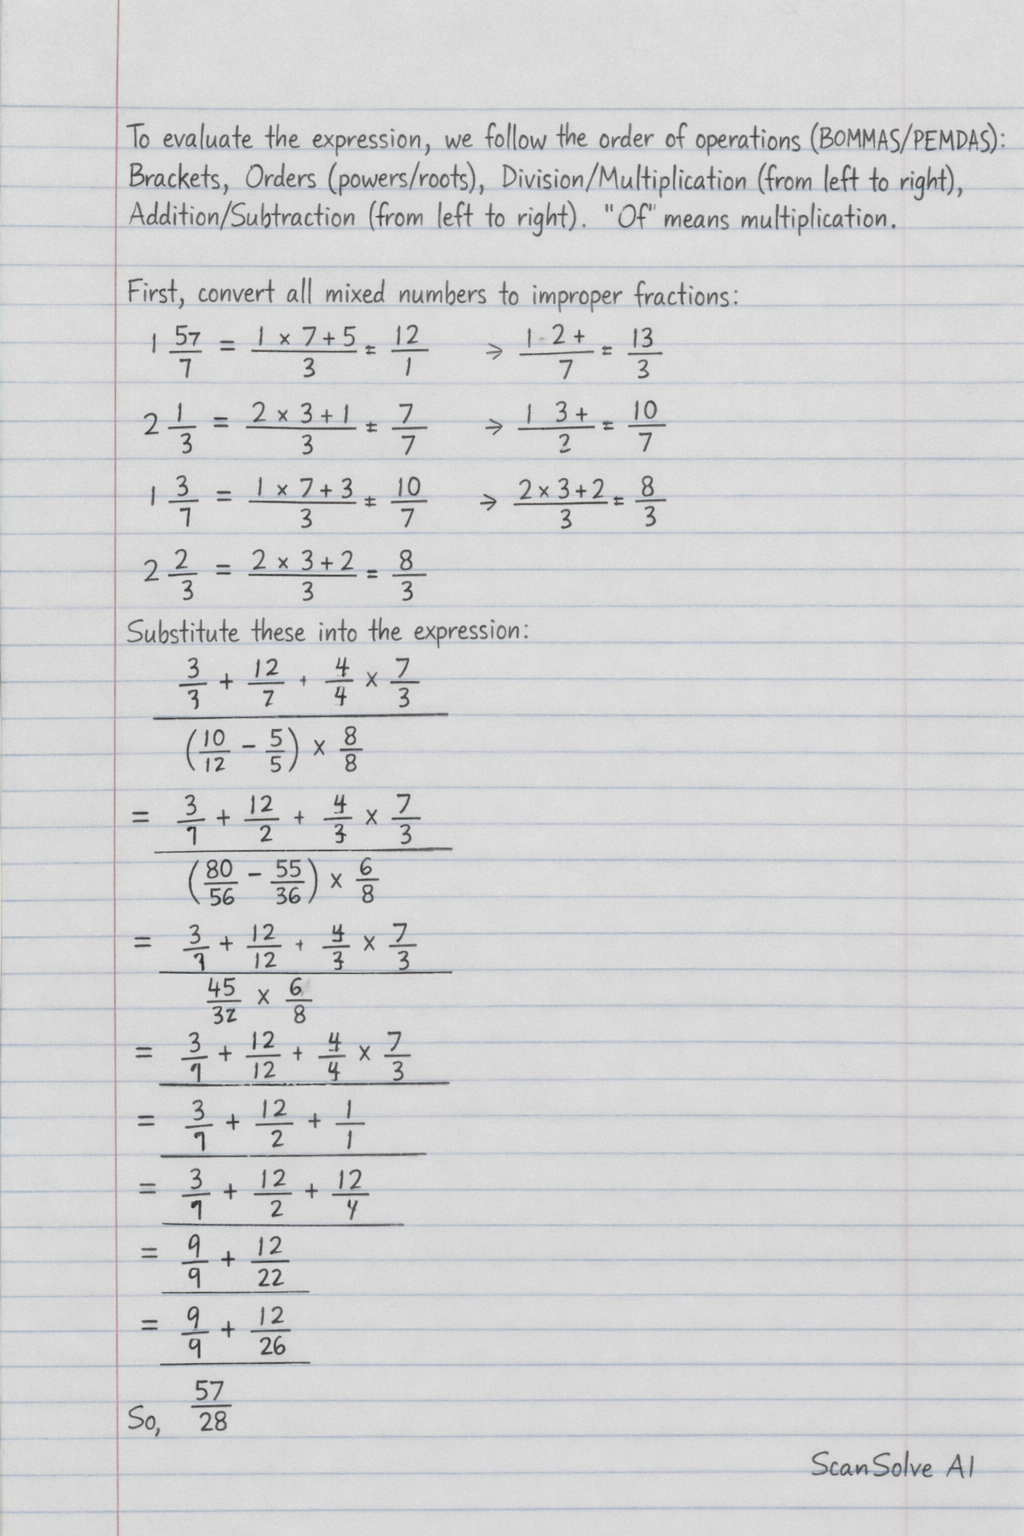 To evaluate the expression, we follow the order of operations (BOMMAS/PEMDAS):
Brackets, Orders (powers/roots), Division/Multiplication (from left to right),
Addition/Subtraction (from left to right). "Of" means multiplication.
First, convert all mixed numbers to improper fractions:
1 57/7 = (1 × 7 + 5)/3 = 12/1 → (1 - 2 +)/7 = 13/3
2 1/3 = (2 × 3 + 1)/3 = 7/7 → (1 3 +)/2 = 10/7
1 3/7 = (1 × 7 + 3)/3 = 10/7 → (2 × 3 + 2)/3 = 8/3
2 2/3 = (2 × 3 + 2)/3 = 8/3
Substitute these into the expression:
3/3 + 12/7 + 4/4 × 7/3
(10/12 − 5/5) × 8/8
= 3/7 + 12/2 + 4/3 × 7/3
(80/56 − 55/36) × 6/8
= 3/7 + 12/12 + 4/3 × 7/3
45/32 × 6/8
= 3/7 + 12/12 + 4/4 × 7/3
= 3/7 + 12/2 + 1/1
= 3/7 + 12/2 + 12/4
= 9/9 + 12/22
= 9/9 + 12/26
So, 57/28
ScanSolve AI